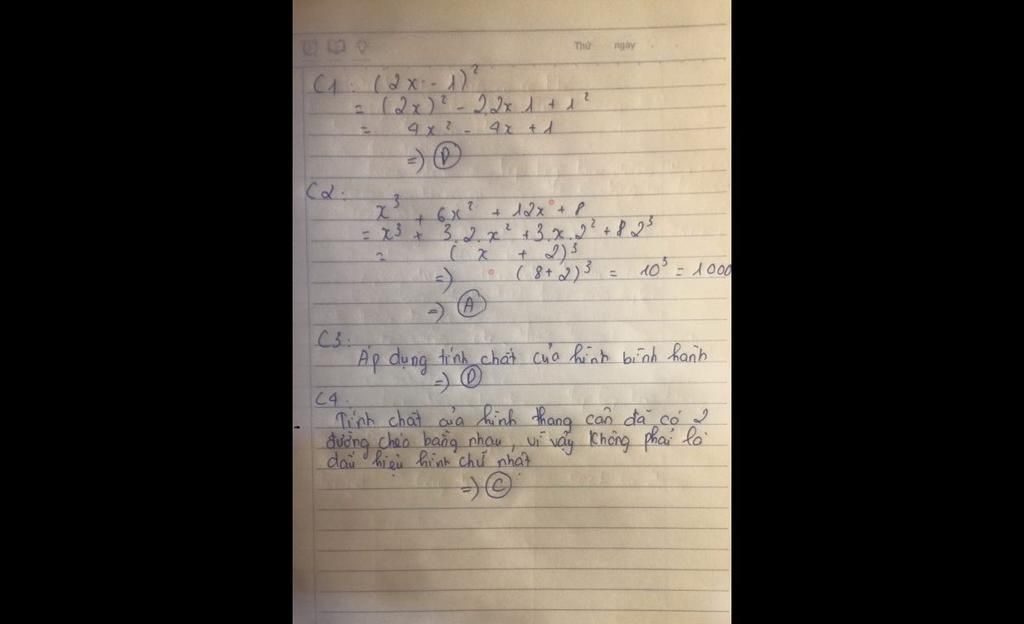 Thứ ngày
C1: (2x - 1)²
= (2x)² - 2.2x 1 + 1²
= 4x² - 4x + 1
=> D
C2:
x³ + 6x² + 12x + 8
= x³ + 3.2.x² + 3.x.2² + 8 2³
= (x + 2)³
=> (8+2)³ = 10³ = 1000
=> A
C3:
Áp dụng tính chất của hình bình hành
=> D
C4.
Tính chất của hình thang cân đã có 2
đường chéo bằng nhau, vì vậy không phải là
dấu hiệu hình chữ nhật
=> C